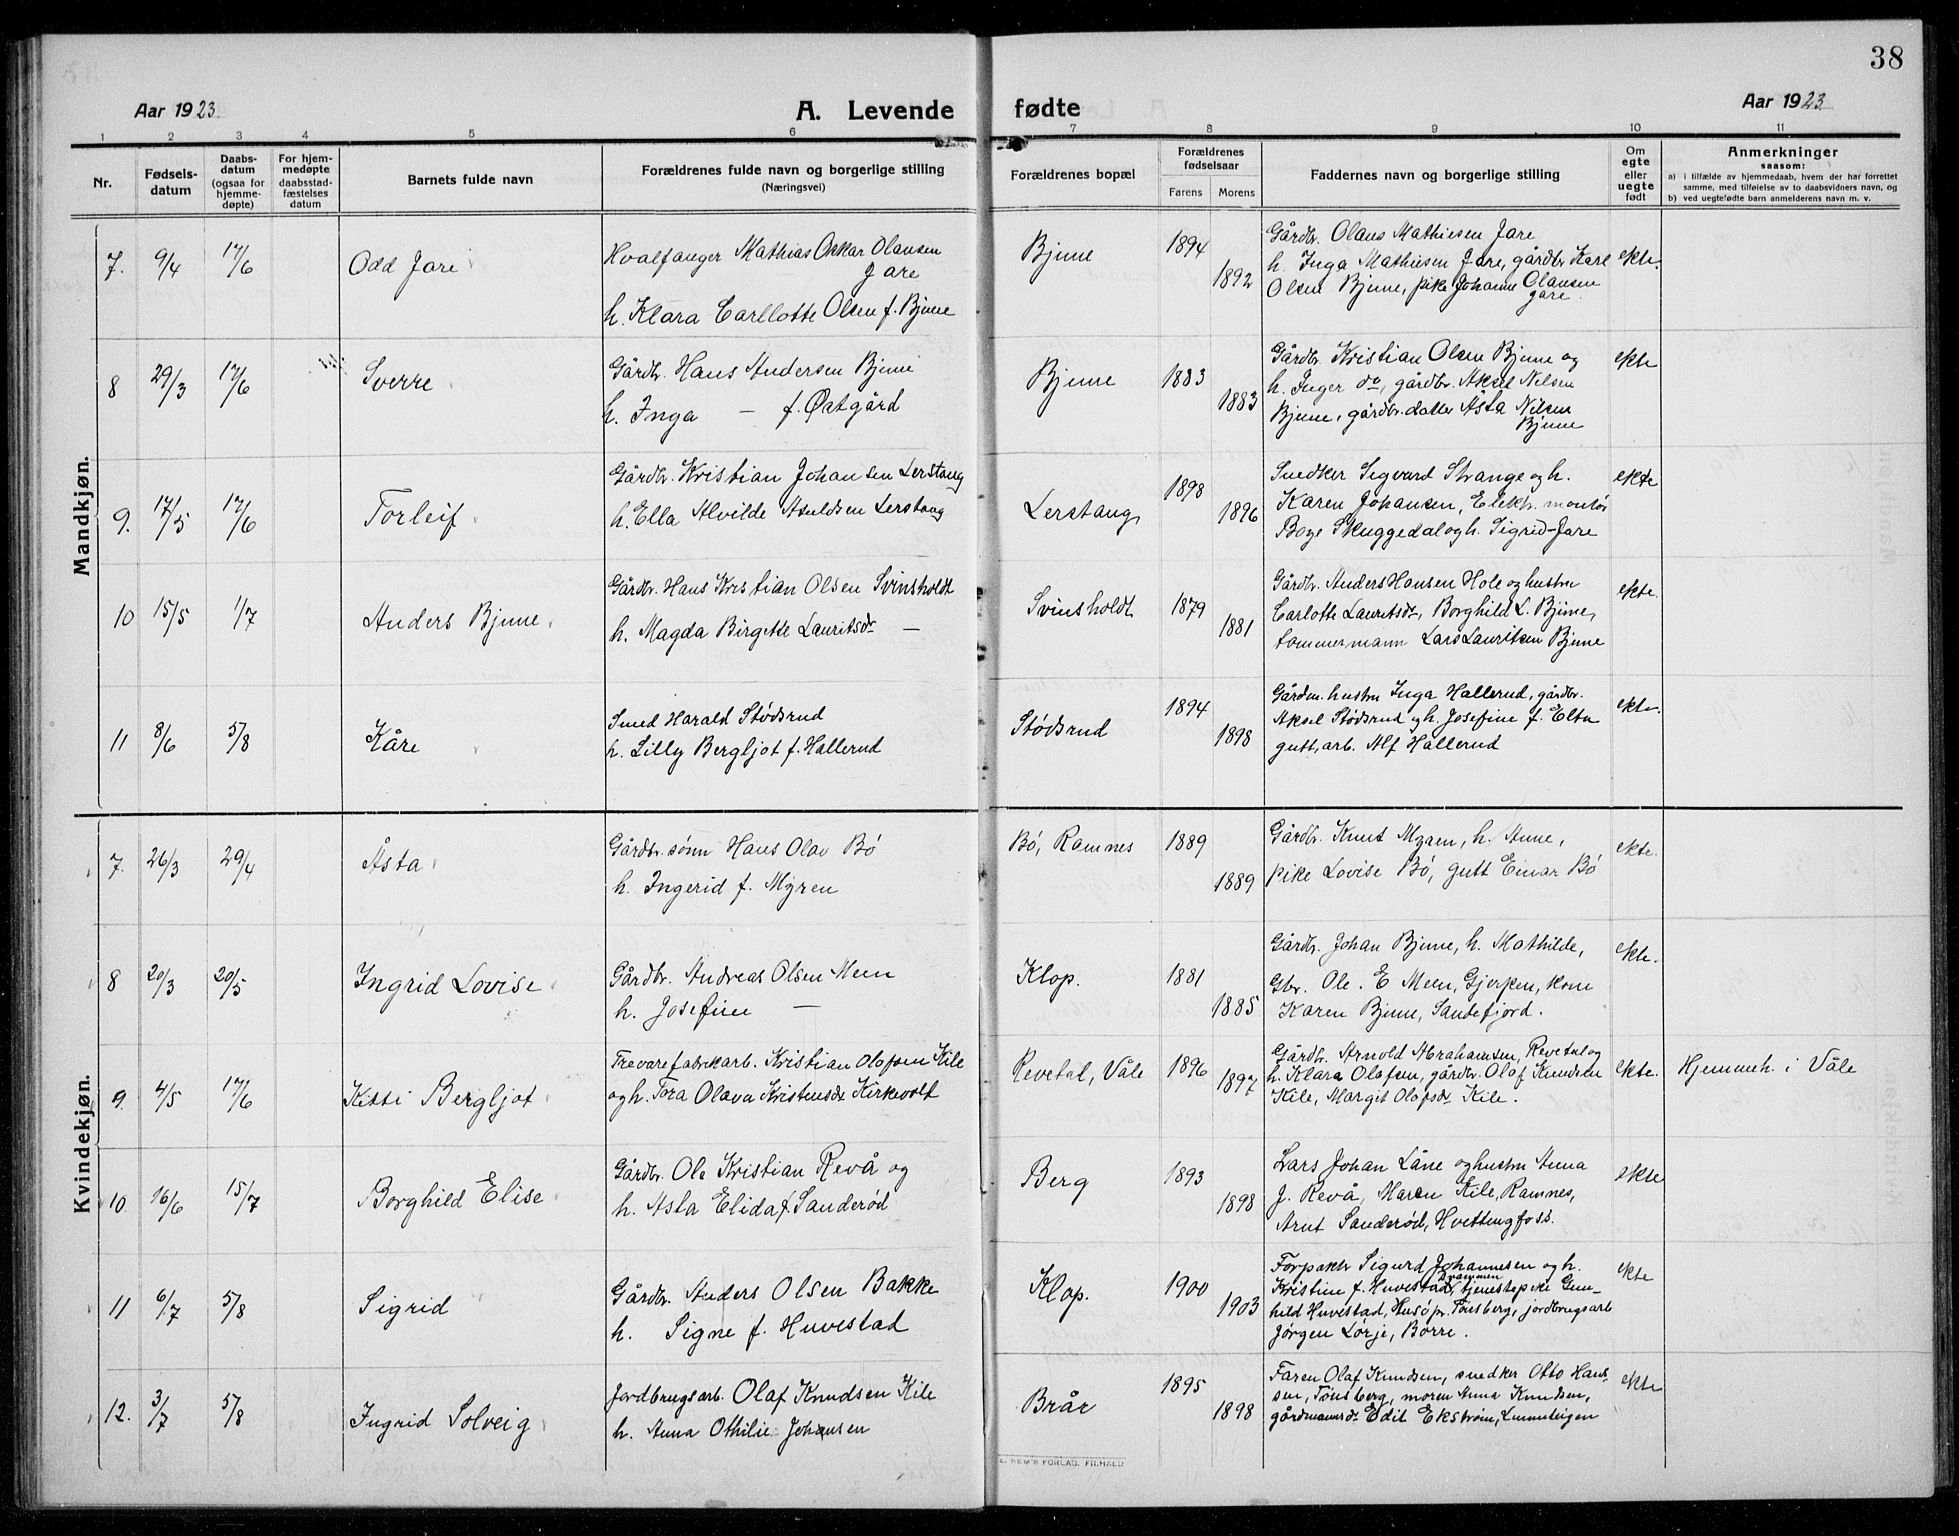 38
Aar 1923
A. Levende fødte
Aar 1923
1 2 3 4 5 6 7 8 9 10 11
Nr.
Fødsels-
datum
Daabs-
datum
(ogsaa for
hjemme-
døpte)
For hjem-
medøpte
daabsstad-
fæstelses
datum
Barnets fulde navn
Forældrenes fulde navn og borgerlige stilling
(Næringsvei)
Forældrenes bopæl
Forældrenes
fødselsaar
Farens Morens
Faddernes navn og borgerlige stilling
Om
egte
eller
uegte
født
Anmerkninger
saasom:
a) i tilfælde av hjemmedaab, hvem der har forrettet
samme, med tilføielse av to daabsvidners navn, og
b) ved uegtefødte barn anmelderens navn m. v.
Mandkjøn.
7. 9/4 17/6 Odd Jare
Hvalfanger Mathias Oskar Olausen
Jare
h. Klara Carllotte Olsen f. Bjune
Bjune 1894 1892
Gårdbr. Olaus Mathiesen Jare
h. Inga Mathiesen Jare, gårdbr. Karl
Olsen Bjune, pike Johanne Olausen
Jare.
ekte.
8 29/3 17/6 Sverre
Gårdbr. Hans Andersen Bjune
h. Inga — f. Østgård
Bjune 1883 1883
Gårdbr. Kristian Olsen Bjune og
h. Inger do, gårdbr. Aksel Nilsen
Bjune, gårdbr. datter Åsta Nilsen
Bjune
ekte
9. 17/5 17/6 Torleif
Gårdbr. Kristian Johansen Lerstang
h. Ella Alvilde Lerstang
Lerstang 1898 1896
Snedker Sigvard Strange og h.
Karen Johansen, Elektr. montør
Skuggedal og h. Sigrid Jare
ekte
10 15/5 1/7 Anders Bjune
Gårdbr. Hans Kristian Olsen Svinsholdt
h. Magda Birgitte Lauritsdr —
Svinsholdt 1879 1881
Gårdbr. Anders Hansen Hole og hustru
Carlotte Lauritsdr, Borghild L. Bjune,
tømmermann Lars Lauritsen Bjune
ekte.
11 8/6 5/8 Kåre
Smed Harald Stødsrud
h. Lilly Bergljot f. Hallerud
Stødsrud 1894 1898
Gårdm. hustru Inga Hallerud, gårdbr.
Aksel Stødsrud og h. Josefine f. Elta
gutt, arb. Alf Hallerud
ekte.
Kvindekjøn.
7. 26/3 29/4 Åsta
Gårdbr. sønn Hans Olav Bø
h. Ingerid f. Myren
Bø, Ramnes 1889 1889
Gårdbr. Knut Myren, h. Anne,
pike Lovise Bø, gutt Einar Bø
ekte.
8 20/3 20/5 Ingrid Lovise
Gårdbr. Andreas Olsen Meen
h. Josefine —
Klop. 1881 1885
Gårdbr. Johan Bjune, h. Mathilde,
Gbr. Ole. E Meen, Gjerpen, kone
Karen Bjune, Sandefjord.
ekte.
9. 4/5 17/6 Kitti Bergljot
Trevarefabrikarb. Kristian Olafsen Kile
og h. Tora Olava Kristensdr Kirkevolt
Revetal, Våle 1896 1897
Gårdbr. Arnold Abrahamsen, Revetal og
h. Klara Olafsen, gårdbr. Olaf Knudsen
Kile, Margit Olafsdr Kile.
ekte. Hjemmeh. i Våle
10. 16/6 15/7 Borghild Elise
Gårdbr. Ole Kristian Revå og
h. Asta Elida f. Sanderød
Berg 1893 1898
Lars Johan Låne og hustru Anna
J. Revå, Maren Kile, Ramnes,
Arnt Sanderød, Hvittingfoss.
ekte
11 6/7 5/8 Sigrid
Gårdbr. Anders Olsen Bakke
h. Signe f. Huvestad
Klop. 1900 1903
Forpakter Sigurd Johannesen og h.
Kristine f. Huvestad, Drammen, tjenestepike Gun-
hild Huvestad, Husø pr. Tønsberg, jordbrugsarb
Jørgen Lørje, Borre.
ekte
12. 3/7 5/8 Ingrid Solveig
Jordbrugsarb. Olaf Knudsen Kile
h. Anna Othilie Johansen
Brår 1895 1898
Faren Olaf Knudsen, snedker Otto Han-
sen, Tønsberg, moren Anna Knudsen,
gårdmannsdr Edit Ekstrøm, Linnesteigen
ekte
SEM'S FORLAG, FR.HALD